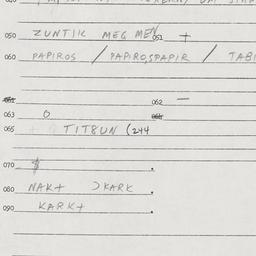 050 ZUNTIK MEG MEN 051 +
060 PAPIROS / PAPIROSPAPIR / TABI
061 062 —
063 O 064
065 TITBUN (244
070 $
080 NAK+ ) KARK
090 KARK+